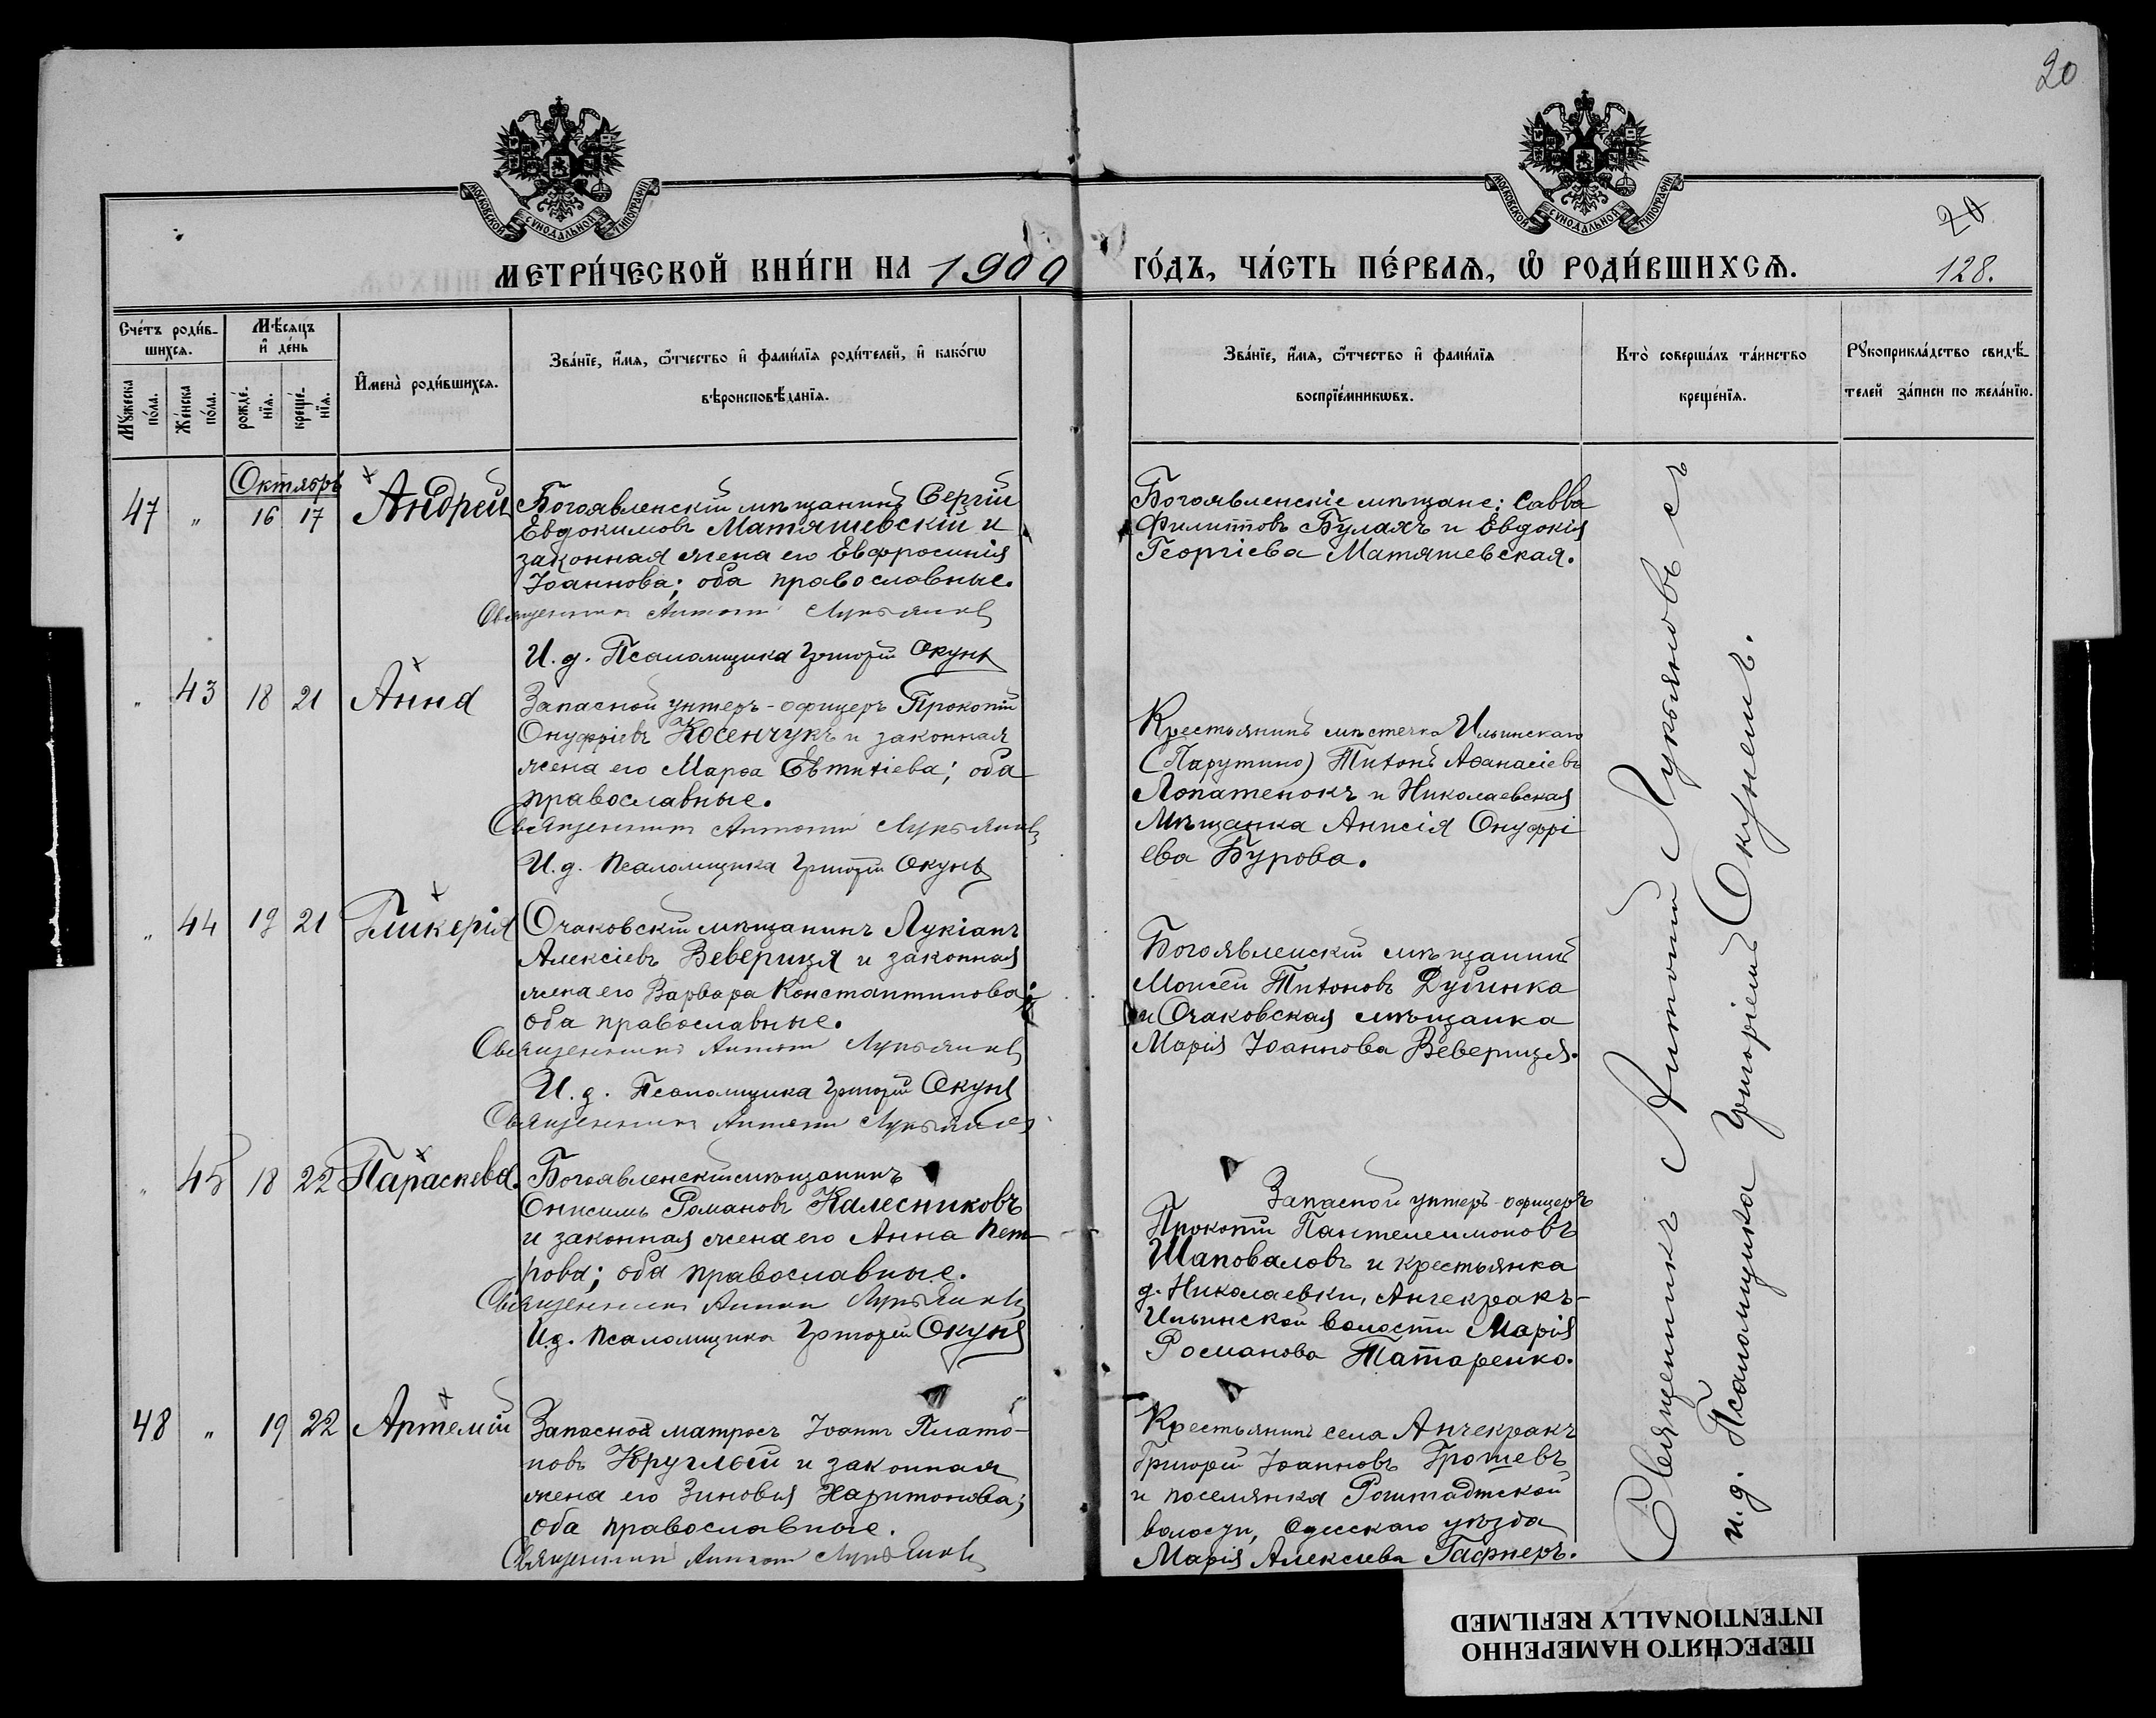 20
МОСКОВСКОЙ СѴНОДАЛЬНОЙ ТИПОГРАФІИ
МОСКОВСКОЙ СѴНОДАЛЬНОЙ ТИПОГРАФІИ
20
МЕТРИ́ЧЕСКОЙ КНИ́ГИ НА 1900
ГО́ДЪ, ЧА́СТЬ ПЕ́РВАѦ, Ѽ РОДИ́ВШИХСѦ.
128.
Сче́тъ роди́в-
шихсѧ.
Мꙋжеска по́ла.
Же́нска по́ла.
Мѣ́сѧцъ
и҆ де́нь
рожде́-
нїѧ.
креще́-
нїѧ.
И҆мена̀ роди́вшихсѧ.
Зва́нїе, и҆́мѧ, ѻ҆́тчество и҆ фами́лїѧ роди́телей, и҆ како́гѡ
вѣроисповѣ́данїѧ.
Зва́нїе, и҆́мѧ, ѻ҆́тчество и҆ фами́лїѧ
воспрїе́мникѡвъ.
Кто̀ соверша́лъ та́инство
креще́нїѧ.
Рꙋкоприкла́дство свидѣ́-
телей за́писи по жела́нїю.
Октябрь
47 " 16 17 Андрей
Богоявленскій мѣщанинъ Сергій
Евдокимовъ Матяшевскій и
законная жена его Евфросинія
Іоаннова; оба православные.
Священникъ Антоній Лукьяновъ
И. д. Псаломщика Григорій Окунь
Богоявленскіе мѣщане: Савва
Филипповъ Булахъ и Евдокія
Георгіева Матяшевская.
" 43 18 21 Анна
Запасной унтеръ-офицеръ Прокопій
Онуфріевъ Косенчукъ и законная
жена его Марѳа Евтихіева; оба
православные.
Священникъ Антоній Лукьяновъ
И. д. псаломщика Григорій Окунь
Крестьянинъ мѣстечка Ильинскаго
(Парутино) Тихонъ Аѳанасіевъ
Лопатенокъ и Николаевская
мѣщанка Анисія Онуфрі
ева Бурова.
" 44 19 21 Гликерія
Очаковскій мѣщанинъ Лукіанъ
Алексіевъ Веверица и законная
жена его Варвара Константинова;
оба православные.
Священникъ Антоній Лукьяновъ
И. д. Псаломщика Григорій Окунь
Священникъ Антоній Лукьяновъ
Богоявленскій мѣщанинъ
Моисей Тихоновъ Дубинка
и Очаковская мѣщанка
Марія Іоаннова Веверица.
" 45 18 22 Параскева.
Богоявленскій мѣщанинъ
Онисимъ Романовъ Калесниковъ
и законная жена его Анна Пет-
рова; оба православные.
Священникъ Антоній Лукьяновъ
И.д. псаломщика Григорій Окунь
Запасной унтеръ-офицеръ
Прокопій Пантелеимоновъ
Шаповаловъ и крестьянка
д. Николаевки, Анчекракъ-
Ильинской волости Марія
Романова Татаренко.
48 " 19 22 Артемій
Запасной матросъ Іоаннъ Плато-
новъ Круглый и законная
жена его Зиновія Харитонова;
оба православные.
Священникъ Антоній Лукьяновъ
Крестьянинъ села Анчекракъ
Григорій Іоанновъ Грошевъ
и поселянка Роштадтской
волости, Одесскаго уѣзда
Марія Алексіева Гафнеръ.
Священникъ Антоній Лукьяновъ съ
и. д. Псаломщика Григоріемъ Окунемъ.
ПЕРЕСНЯТО НАМЕРЕННО
INTENTIONALLY REFILMED